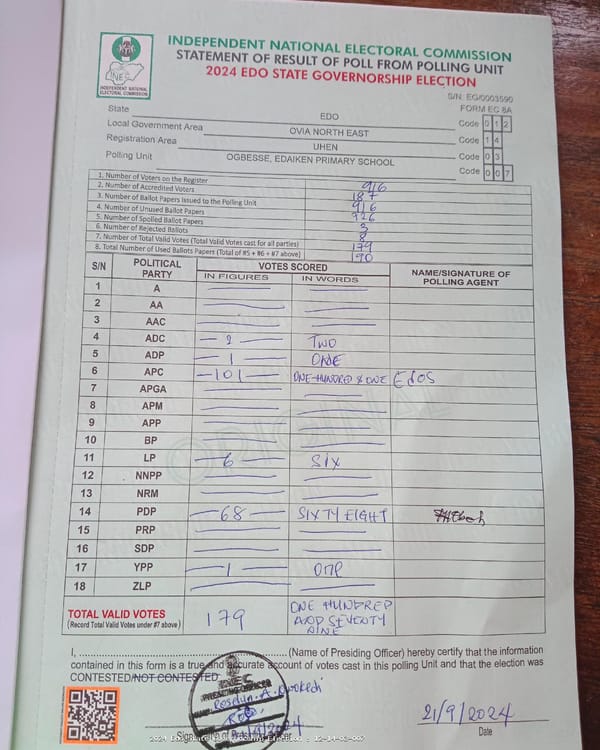 INDEPENDENT NATIONAL ELECTORAL COMMISSION
STATEMENT OF RESULT OF POLL FROM POLLING UNIT
2024 EDO STATE GOVERNORSHIP ELECTION
INEC
INDEPENDENT NATIONAL ELECTORAL COMMISSION
S/N: EG/0003590
FORM EC 8A
State EDO Code 0 1 2
Local Government Area OVIA NORTH EAST Code 1 4
Registration Area UHEN Code 0 3
Polling Unit OGBESSE, EDAIKEN PRIMARY SCHOOL Code 0 0 7
1. Number of Voters on the Register 916
2. Number of Accredited Voters 187
3. Number of Ballot Papers Issued to the Polling Unit 916
4. Number of Unused Ballot Papers 726
5. Number of Spoiled Ballot Papers 3
6. Number of Rejected Ballots 8
7. Number of Total Valid Votes (Total Valid Votes cast for all parties) 179
8. Total Number of Used Ballots Papers (Total of #5 + #6 + #7 above) 190
S/N POLITICAL PARTY VOTES SCORED NAME/SIGNATURE OF POLLING AGENT
IN FIGURES IN WORDS
1 A
2 AA
3 AAC
4 ADC 2 TWO
5 ADP 1 ONE
6 APC 101 ONE-HUNDRED & ONE Edos
7 APGA
8 APM
9 APP
10 BP
11 LP 6 SIX
12 NNPP
13 NRM
14 PDP 68 SIXTY EIGHT
15 PRP
16 SDP
17 YPP 1 one
18 ZLP
ORIGINAL
TOTAL VALID VOTES 179 ONE HUNDRED AND SEVENTY NINE
(Record Total Valid Votes under #7 above)
I, (Name of Presiding Officer) hereby certify that the information
contained in this form is a true and accurate account of votes cast in this polling Unit and that the election was
CONTESTED/NOT CONTESTED.
INEC
PRESIDING OFFICER
21/9/2024
Date